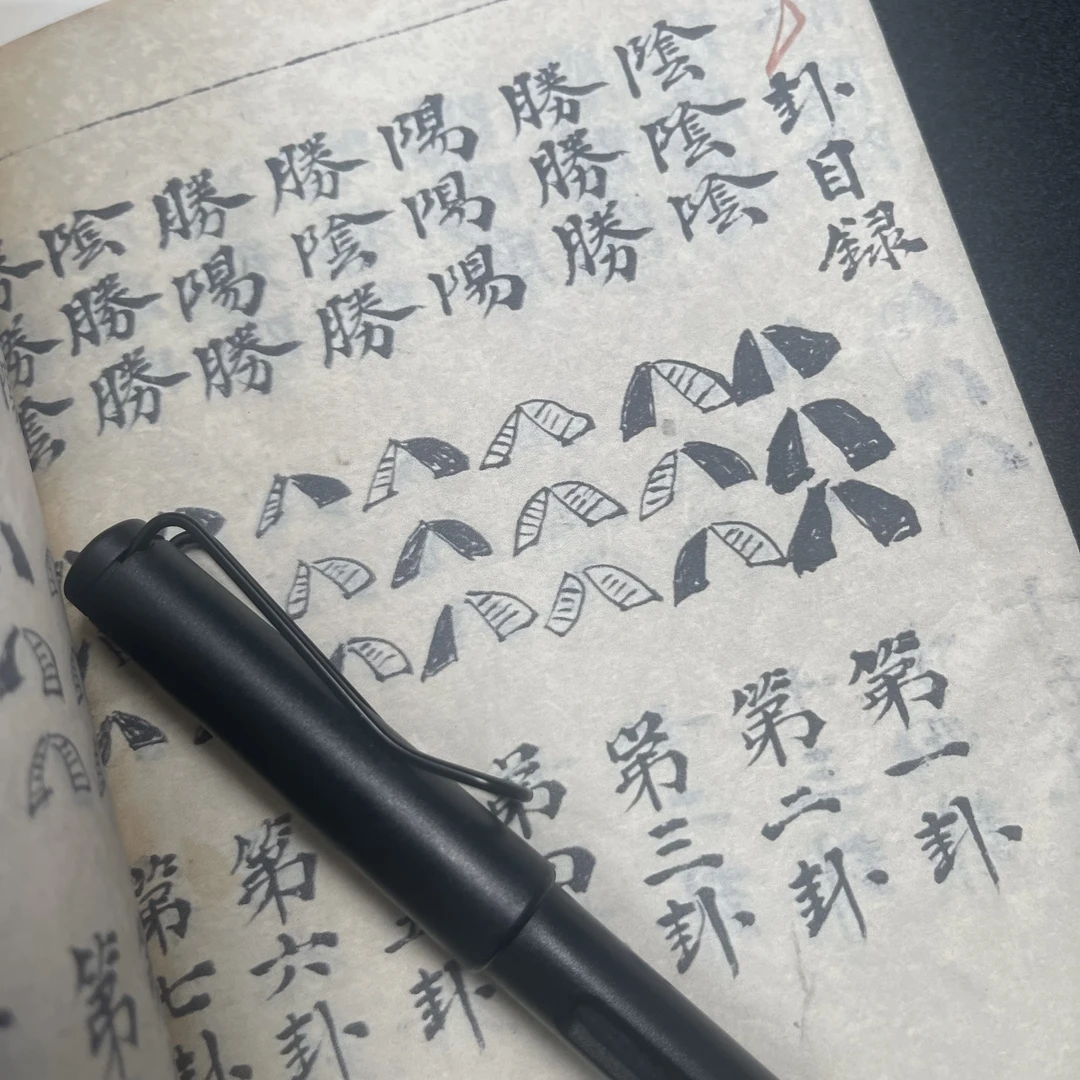 卦目録
陰陰陰 第一卦
勝勝勝 第二卦
陽陽陽 第三卦
勝陰勝 第
勝陽勝 卦
陰勝勝 第六卦
勝勝陰 第七卦
第